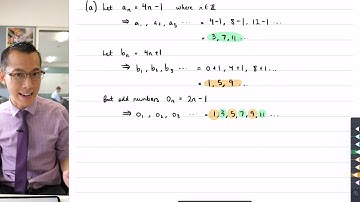 (a) Let aₙ = 4n-1 where n∈ℤ
⇒ a₁, a₂, a₃ ... = 4-1, 8-1, 12-1 ...
= 3, 7, 11 ...
Let bₙ = 4n+1
⇒ b₁, b₂, b₃ ... = 0+1, 4+1, 8+1 ...
= 1, 5, 9 ...
But odd numbers Oₙ = 2n-1
⇒ O₁, O₂, O₃ ... = 1, 3, 5, 7, 9, 11 ...